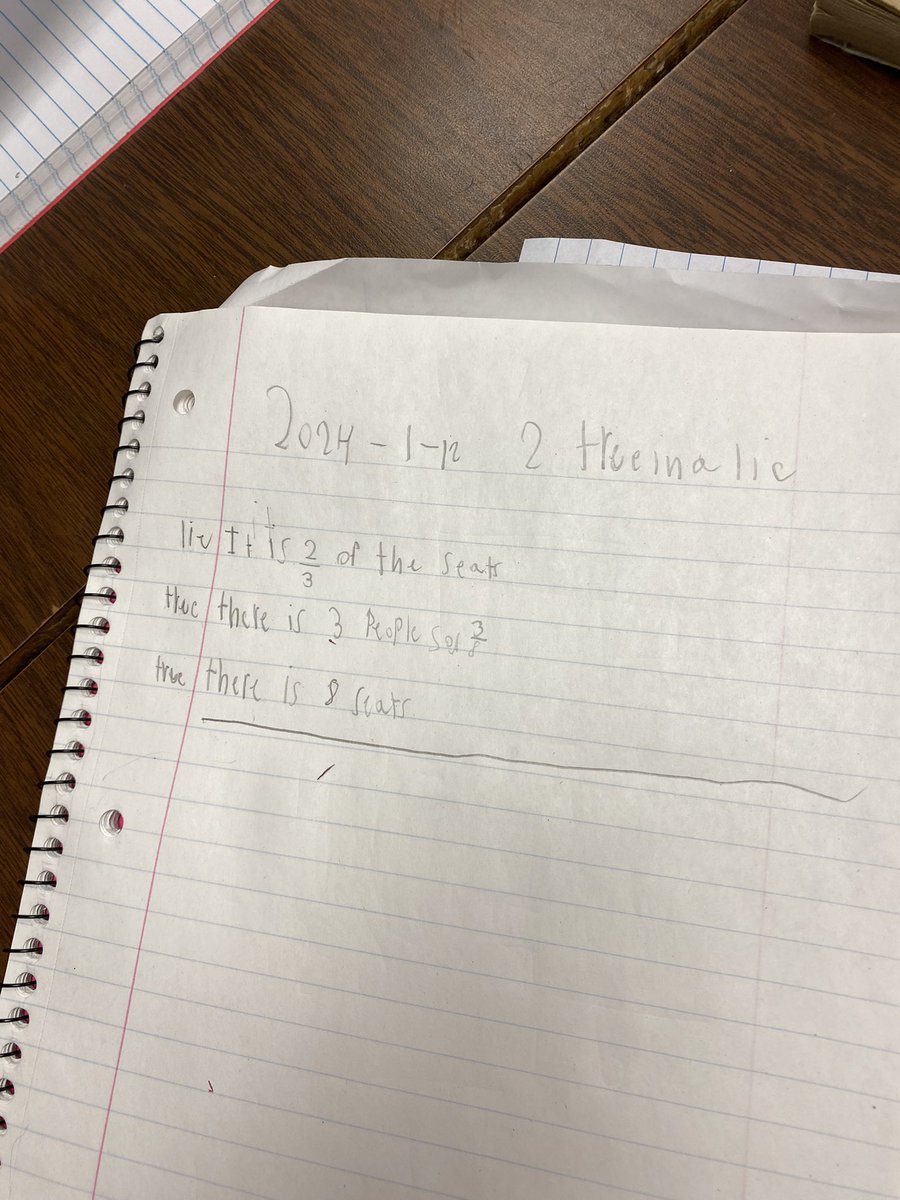 2024-1-12 2 trueina lie
lie It is 2/3 of the seats
true there is 3 People so 3/8
true there is 8 seats